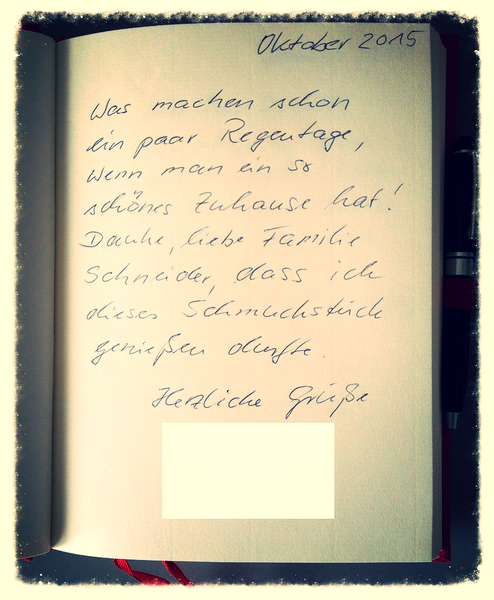 Oktober 2015
Was machen schon
ein paar Regentage,
wenn man ein so
schönes Zuhause hat!
Danke, liebe Familie
Schneider, dass ich
dieses Schmuckstück
genießen durfte.
Herzliche Grüße